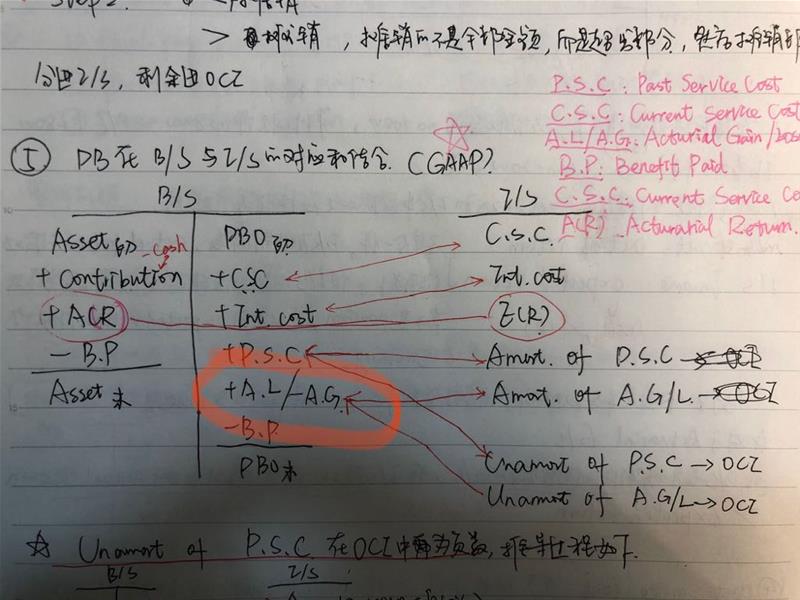 > 摊销, 摊销的不是全部金额, 而是超出部分, 然后摊销部
分进I/S, 剩余进OCI
P.S.C: Past Service Cost
C.S.C: Current Service Cost
A.L/A.G: Acturial Gain/Loss
B.P: Benefit Paid
C.S.C: Current Service Co
A(R) Acturarial Return.
① DB在B/S与I/S的对应和结合. (GAAP)
B/S I/S
Asset初 -cash PBO初 C.S.C.
+ Contribution +CSC Int. cost
+ A(R) + Int. cost E(R)
- B.P +P.S.C Amort. of P.S.C → OCI
Asset末 +A.L/-A.G. Amort. of A.G/L. → OCI
-B.P.
PBO末 Unamort of P.S.C → OCI
Unamort of A.G/L → OCI
☆ Unamort of P.S.C. 在OCI中为负数, 推导过程如下.
B/S I/S